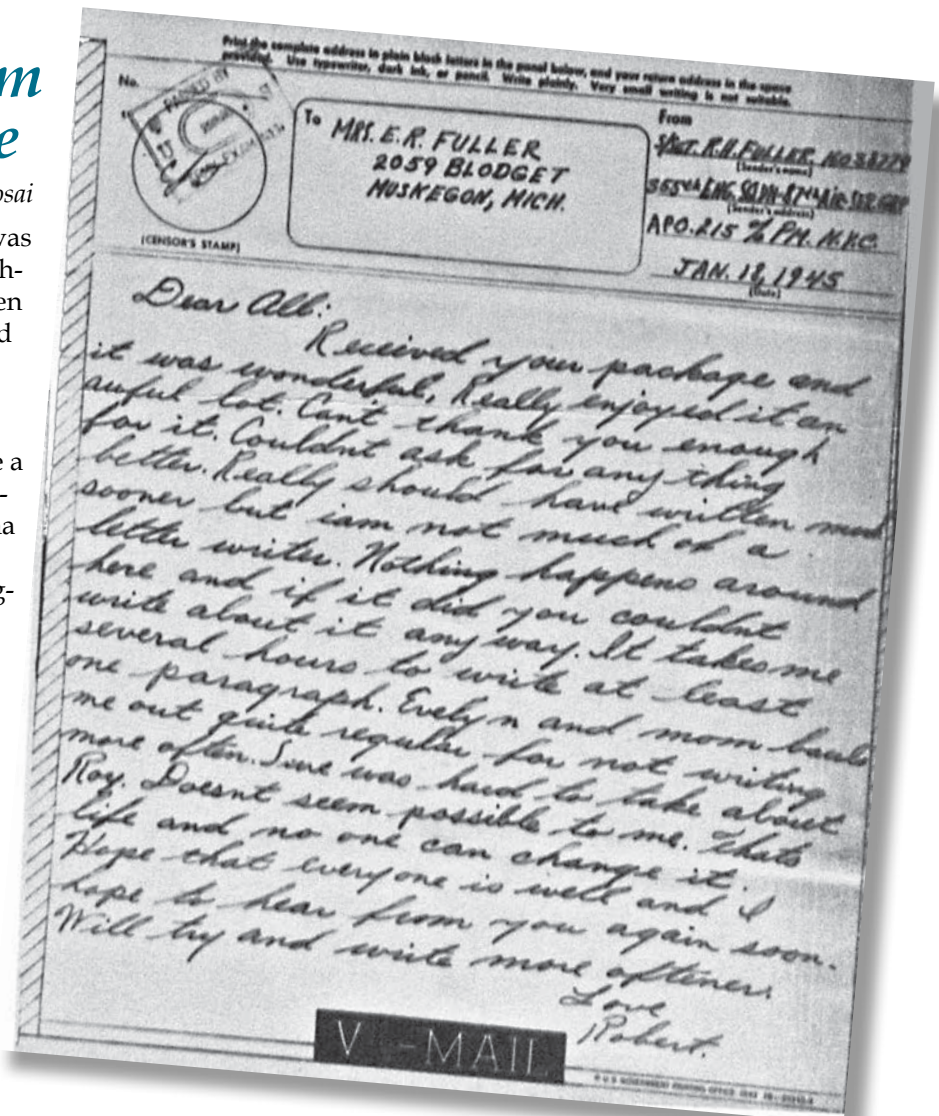 m
e
osai
was
h-
en
d
e a
-
a
g-
Print the complete address in plain block letters in the panel below, and your return address in the space
provided. Use typewriter, dark ink, or pencil. Write plainly. Very small writing is not suitable.
No.
PASSED BY
(CENSOR'S STAMP)
To MRS. E.R. FULLER
2059 BLODGET
MUSKEGON, MICH.
From
S/SGT. R.H. FULLER,
(Sender's name)
(Sender's address)
APO. 215 % PM. N.Y.C.
JAN. 12, 1945
(Date)
Dear All:
Received your package and
it was wonderful, Really enjoyed it an
awful lot. Cant thank you enough
for it. Couldnt ask for any thing
better. Really should have written
sooner but iam not much of a
letter writer. Nothing happens around
here and if it did you couldnt
write about it any way. It takes me
several hours to write at least
one paragraph. Evelyn and mom bawls
me out quite regular for not writing
more often. Sure was hard to take about
Roy. Doesnt seem possible to me. Thats
life and no one can change it.
Hope that everyone is well and I
hope to hear from you again soon.
Will try and write more oftener.
Love
Robert.
V-MAIL